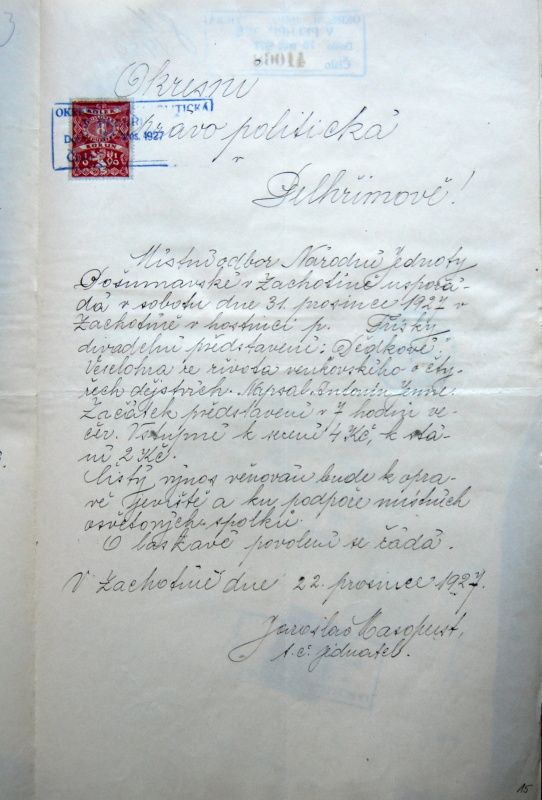 Okresní
správa politická
v
Pelhřimově!
Místní odbor Národní Jednoty
Pošumavské v Zachotíně uspořá-
dá v sobotu dne 31. prosince 1927 v
Zachotíně v hostinci p. Trůsky
divadelní představení: „Dědkové",
Veselohra ze života venkovského o čty-
řech dějstvích. Napsal Antonín Jenne.
Začátek představení v 7 hodin ve-
čer. Vstupné k sezení 4 Kč, k stá-
ní 2 Kč.
Čistý výnos věnován bude k opra-
vě jeviště a ku podpoře místních
osvětových spolků.
O laskavé povolení se žádá.
V Zachotíně dne 22. prosince 1927.
Jaroslav Masopust,
t. č. jednatel.
15